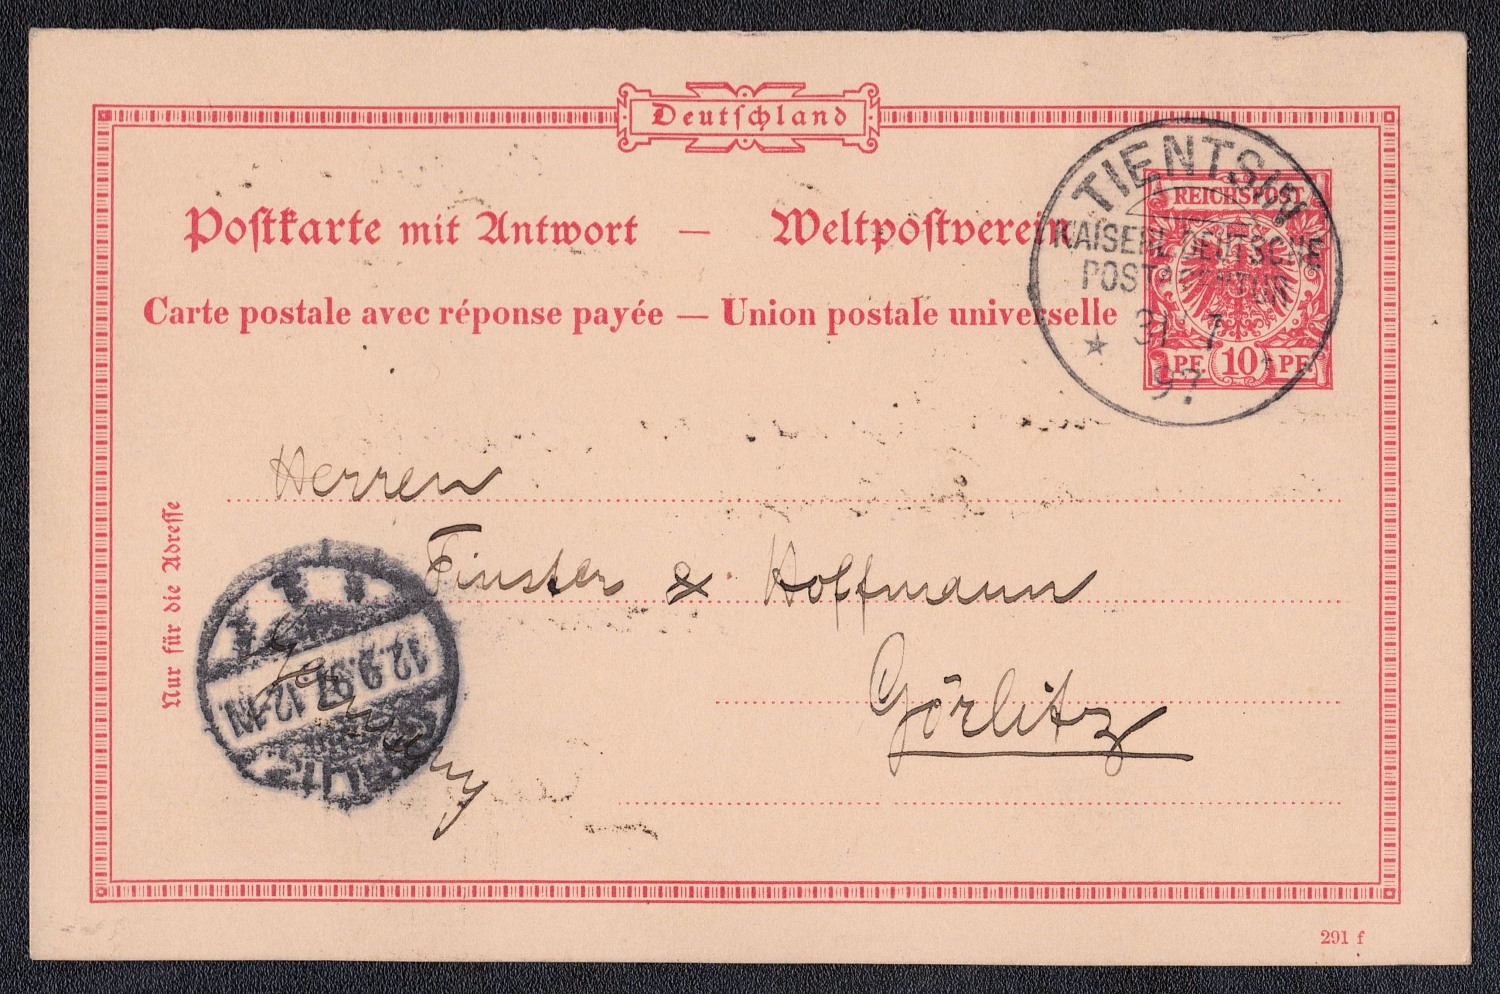 Deutschland
Postkarte mit Antwort — Weltpostverein
Carte postale avec réponse payée — Union postale universelle
REICHSPOST
PF. 10 PF.
TIENTSIN
KAISERL. DEUTSCHE
POSTAGENTUR
* 31 7
97
Herren
Finster & Hoffmann
Görlitz
Germany
Nur für die Adresse
12.9.97.12-1N.
291 f